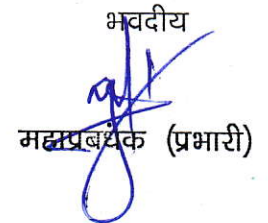 भवदीय
महाप्रबंधक (प्रभारी)